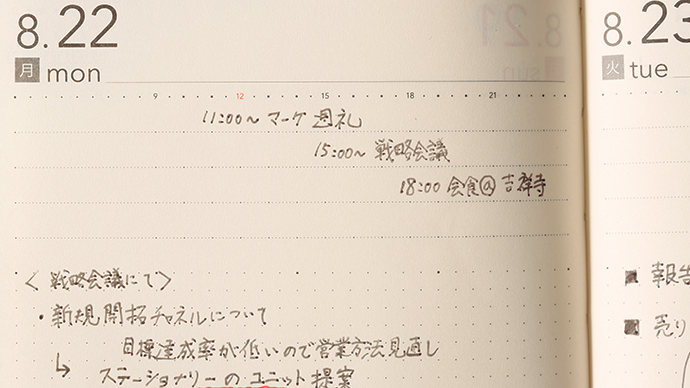 8.22
月 mon
9 12 15 18 21
11:00～ マーケ 週礼
15:00～ 戦略会議
18:00 会食@吉祥寺
〈戦略会議にて〉
・新規開拓チャネルについて
目標達成率が低いので営業方法見直し
↳ ステーショナリーのユニット提案
8.23
火 tue
■ 報告
■ 売り
8.21
sun